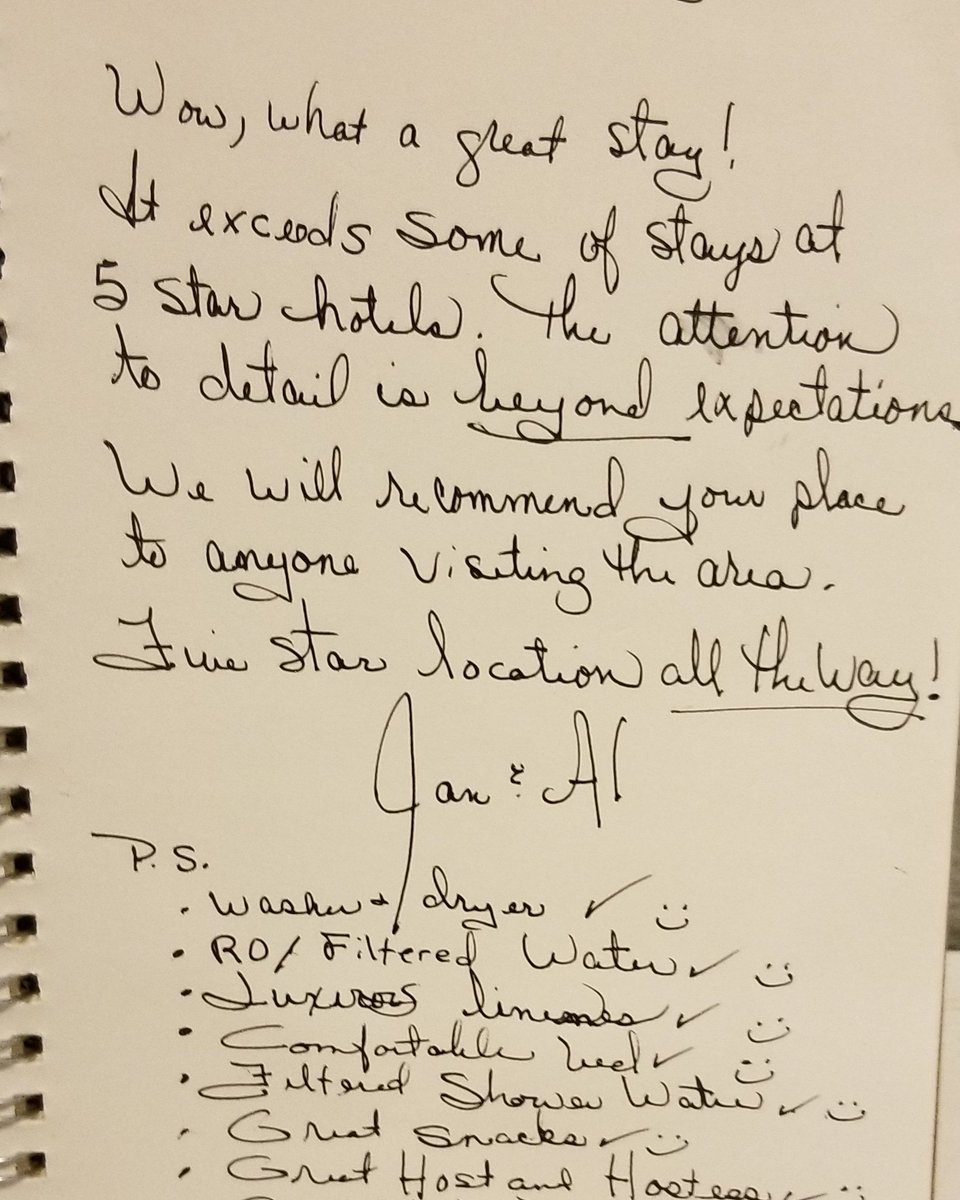 Wow, what a great stay!
It exceeds some of stays at
5 star hotels. The attention
to detail is beyond expectations
We will recommend your place
to anyone visiting the area.
Five star location all the way!
Jan & Al
P.S.
• washer & dryer ✓ :)
• RO/ Filtered Water ✓ :)
• Luxurous linens ✓ :)
• Comfortable bed ✓ :)
• Filtered Shower Water ✓ :)
• Great snacks ✓ :)
• Great Host and Hostess ✓ :)